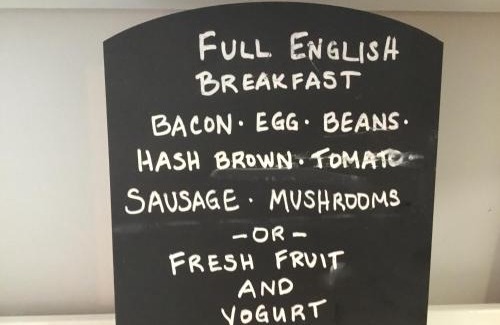 FULL ENGLISH
BREAKFAST
BACON · EGG · BEANS ·
HASH BROWN · TOMATO ·
SAUSAGE · MUSHROOMS
- OR -
FRESH FRUIT
AND
YOGURT